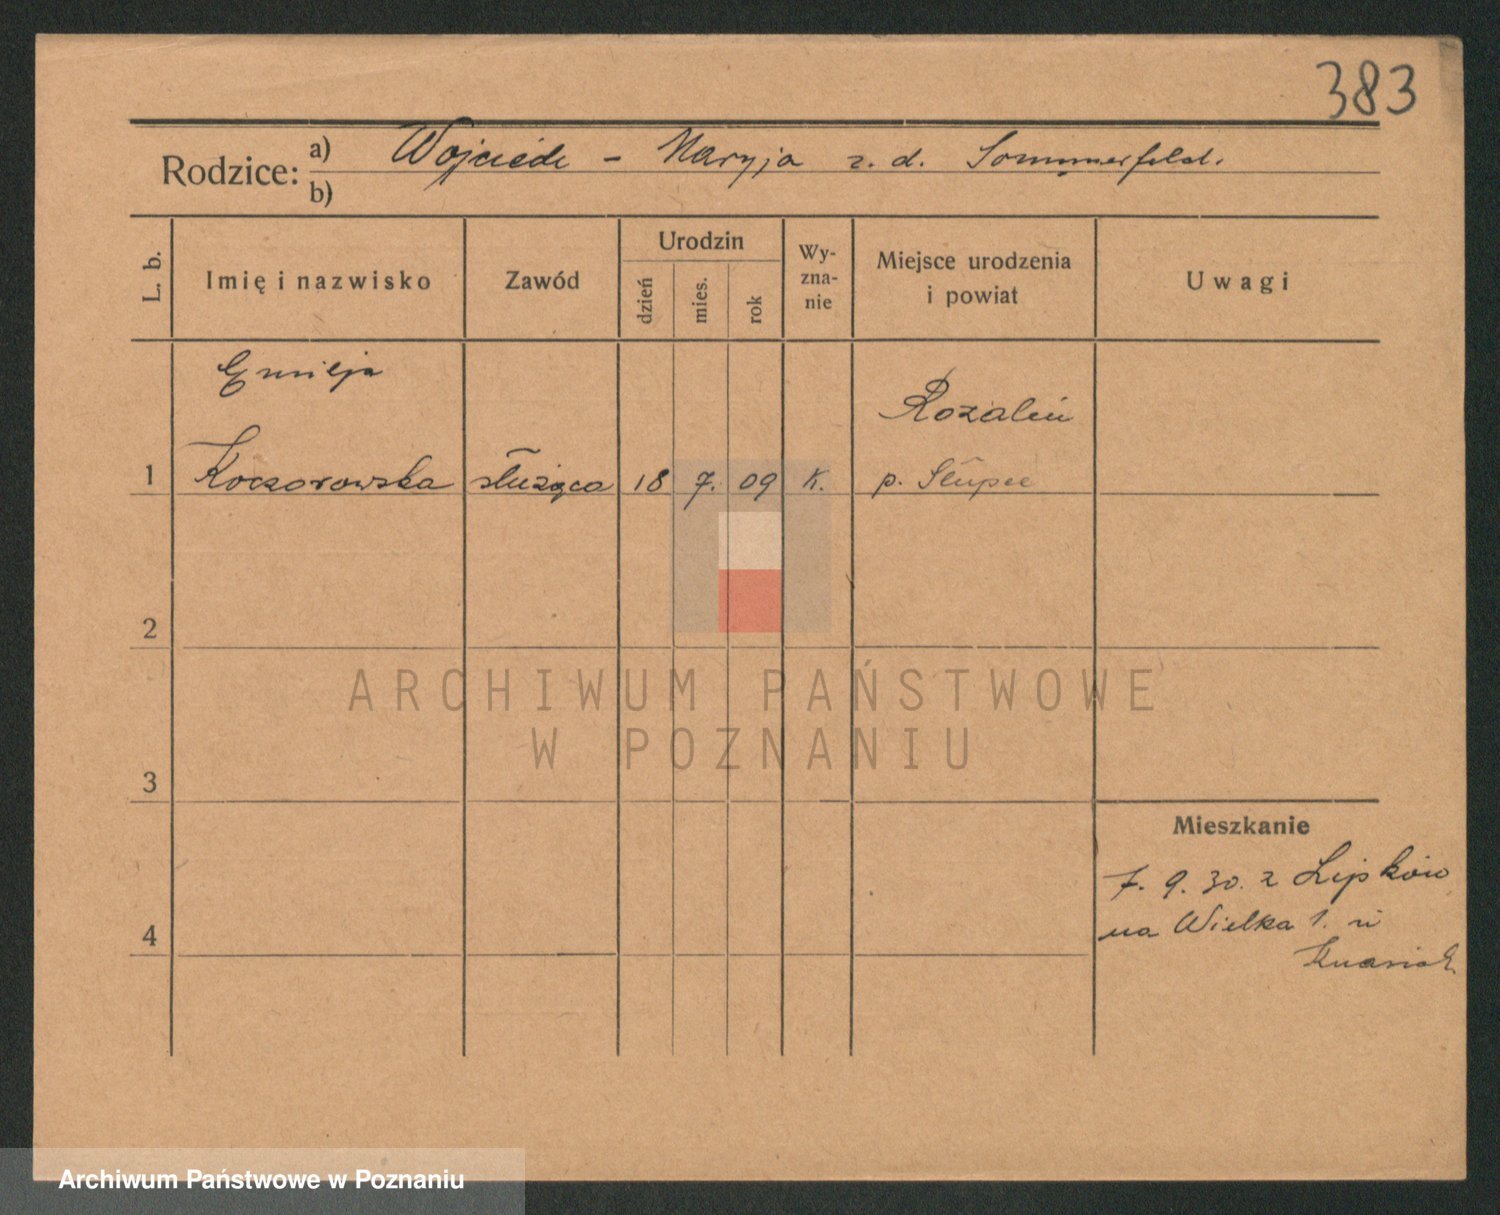 383
Rodzice: a) Wojciech - Maryja z. d. Sommerfeld.
b)
L. b.
Imię i nazwisko
Zawód
Urodzin
dzień
mies.
rok
Wy-
zna-
nie
Miejsce urodzenia
i powiat
Uwagi
Emilja
Rozalin
1 Koczorowska służąca 18 7. 09 K. p. Słupce
2
ARCHIWUM PAŃSTWOWE
W POZNANIU
3
Mieszkanie
7. 9. 30. z Lipków
na Wielka 1. u
4
Archiwum Państwowe w Poznaniu